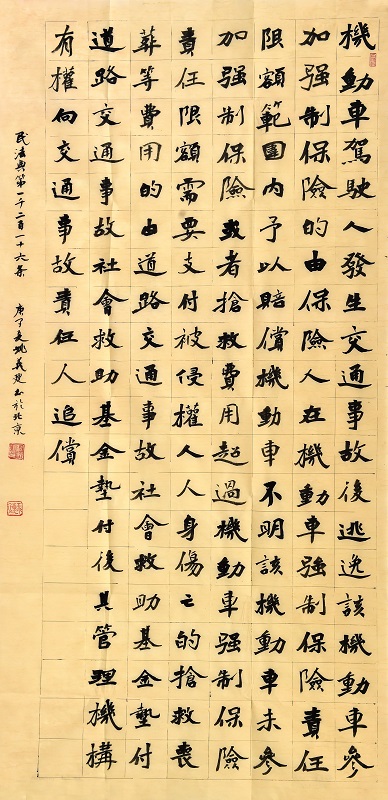 機動車駕駛人發生交通事故後逃逸該機動車參
加强制保險的由保險人在機動車强制保險責任
限額範圍内予以賠償機動車不明該機動車未參
加强制保險或者搶救費用超過機動車强制保險
責任限額需要支付被侵權人人身傷亡的搶救喪
葬等費用的由道路交通事故社會救助基金墊付
道路交通事故社會救助基金墊付後其管理機構
有權向交通事故責任人追償
民法典第一千二百一十六条 庚子夏姚義書於北京